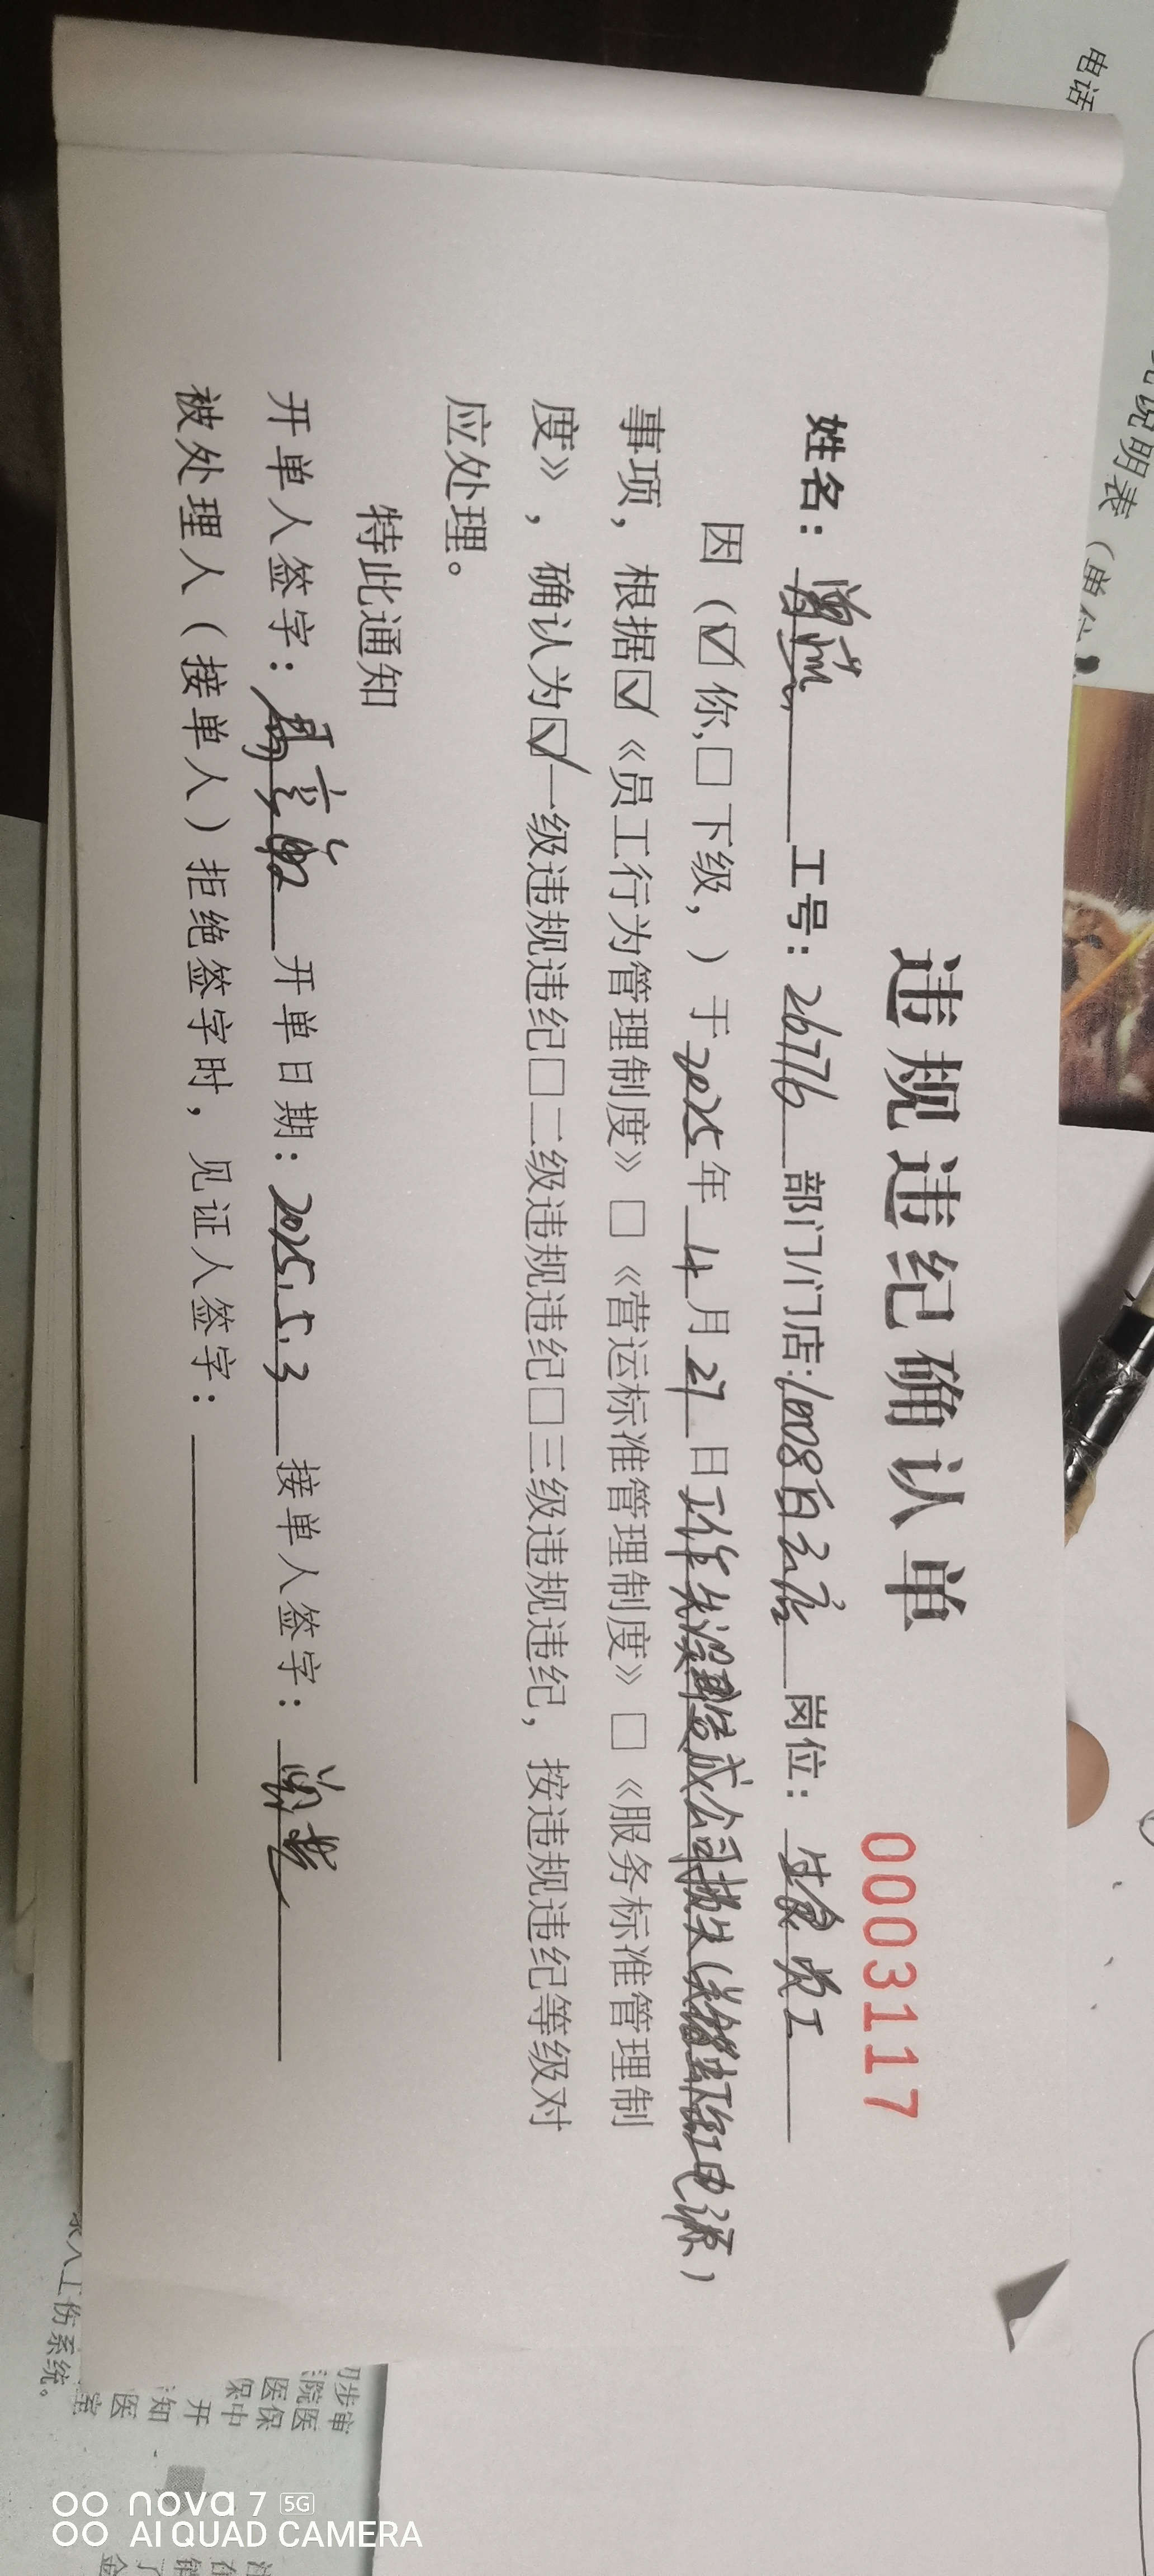 违规违纪确认单
0003117
姓名： 工号：26776 部门/门店:1008白云店 岗位： 员工
因（☑你,□下级，）于2025年4月27日工作失误造成公司损失（关错虾缸电源）
事项，根据☑《员工行为管理制度》□《营运标准管理制度》□《服务标准管理制
度》，确认为☑一级违规违纪□二级违规违纪□三级违规违纪，按违规违纪等级对
应处理。
特此通知
开单人签字： 开单日期：2025.5.3 接单人签字：
被处理人（接单人）拒绝签字时，见证人签字：
电话
说明表（单位
家入工伤系统。
初步审
医院医
医保
保中
开
知
医
室
nova 7 5G
AI QUAD CAMERA